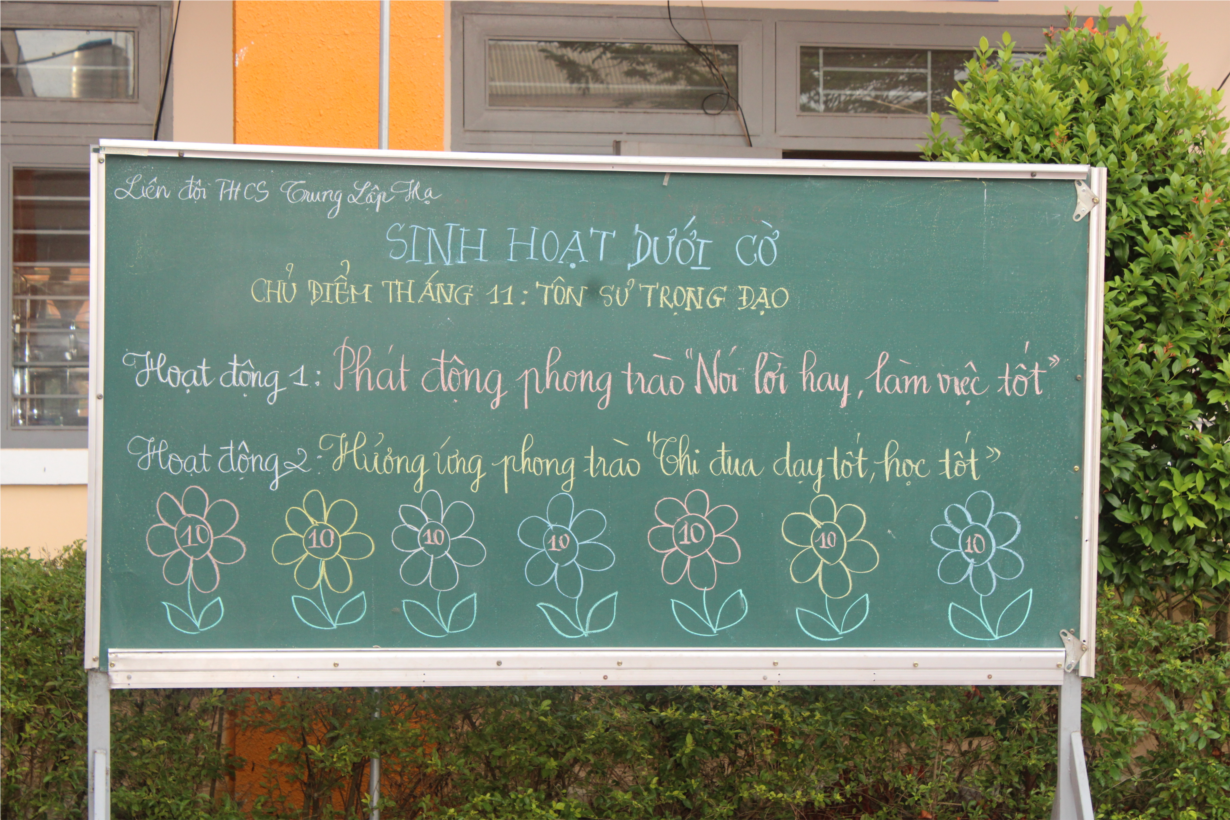 Liên đội THCS Trung Lập Hạ
SINH HOẠT DƯỚI CỜ
CHỦ ĐIỂM THÁNG 11: TÔN SƯ TRỌNG ĐẠO
Hoạt động 1: Phát động phong trào "Nói lời hay, làm việc tốt"
Hoạt động 2: Hưởng ứng phong trào "Thi đua dạy tốt, học tốt"
10 10 10 10 10 10 10